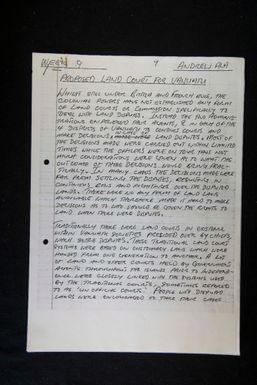 WEEK 9 9 ANDREW ALA
PROPOSED LAND COURT FOR VANUATU
WHILST STILL UNDER BRITISH AND FRENCH RULE, THE
COLONIAL POWERS HAVE NOT ESTABLISHED ANY FORM
OF LAND COURTS OR COMMISSION SPECIFICALLY TO
DEAL WITH LAND DISPUTES. INSTEAD THE TWO ADMINI-
STRATIONS EMPLOYED AGENTS, IN EACH OF THE
4 DISTRICTS OF VANUATU TO CONDUCT COURTS AND
MAKE DECISIONS LAND DISPUTES. MOST OF
THE DECISIONS MADE WERE CARRIED OUT WITHIN LIMITED
TIMES WHILE THE OFFICERS WERE ON TOUR THUS NOT
MUCH CONSIDERATIONS WERE GIVEN AS TO WHAT THE
OUTCOME OF THESE DECISIONS WOULD BRING
IN MANY CASES THE DECISIONS MADE WERE
FAR FROM SETTLING THE DISPUTES, RESULTING IN
CONTINUED OVER THE DISPUTED
LANDS. THERE WERE NO ANY FORM OF LAND LAWS
AVAILABLE WHICH THEREFORE MADE IT HARD TO MAKE
DECISIONS AS TO WHO SHOULD BE GIVEN THE RIGHTS TO
LAND WHEN THERE WERE DISPUTES.
TRADITIONALLY THERE WERE LAND COURTS IN EXISTENCE
WITHIN VANUATU SOCIETIES PRESIDED OVER BY CHIEFS,
WHICH SETTLE DISPUTES. THESE TRADITIONAL LAND COURT
SYSTEMS WERE BASED ON CUSTOMARY LAWS WHICH WERE
HANDED FROM ONE GENERATION TO ANOTHER. A LOT
OF LAND AND OTHER COURTS HELD BY GOVERNMENT
AGENTS THROUGHOUT THE ISLANDS PRIOR TO INDEPEND-
ENCE WERE CLOSELY LINKED WITH THE SYSTEMS USED
BY THE TRADITIONAL COURTS, SOMETIMES REFERRED
TO AS "UNOFFICIAL COURTS". PEOPLE WITH DISPUTED
LANDS WERE ENCOURAGED TO TAKE THEIR CASES